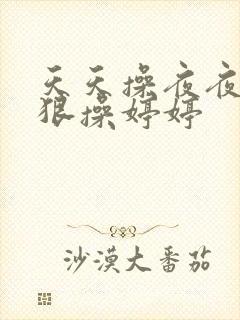 天天操夜夜
狠操婷婷
沙漠大番茄